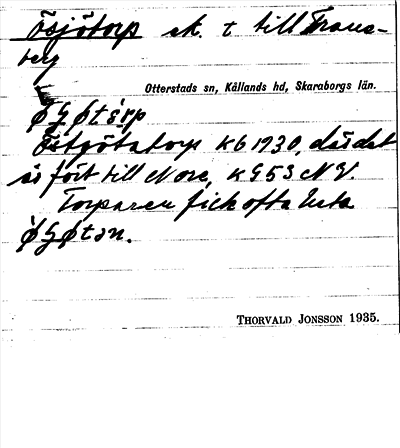 Ösjötorp sk. t till Trans-
berg
Otterstads sn, Kållands hd, Skaraborgs län.
Östgötatorp kb 1930, där det
är fört till Nore, k G53 NV.
Torparen fick ofta heta
THORVALD JONSSON 1935.